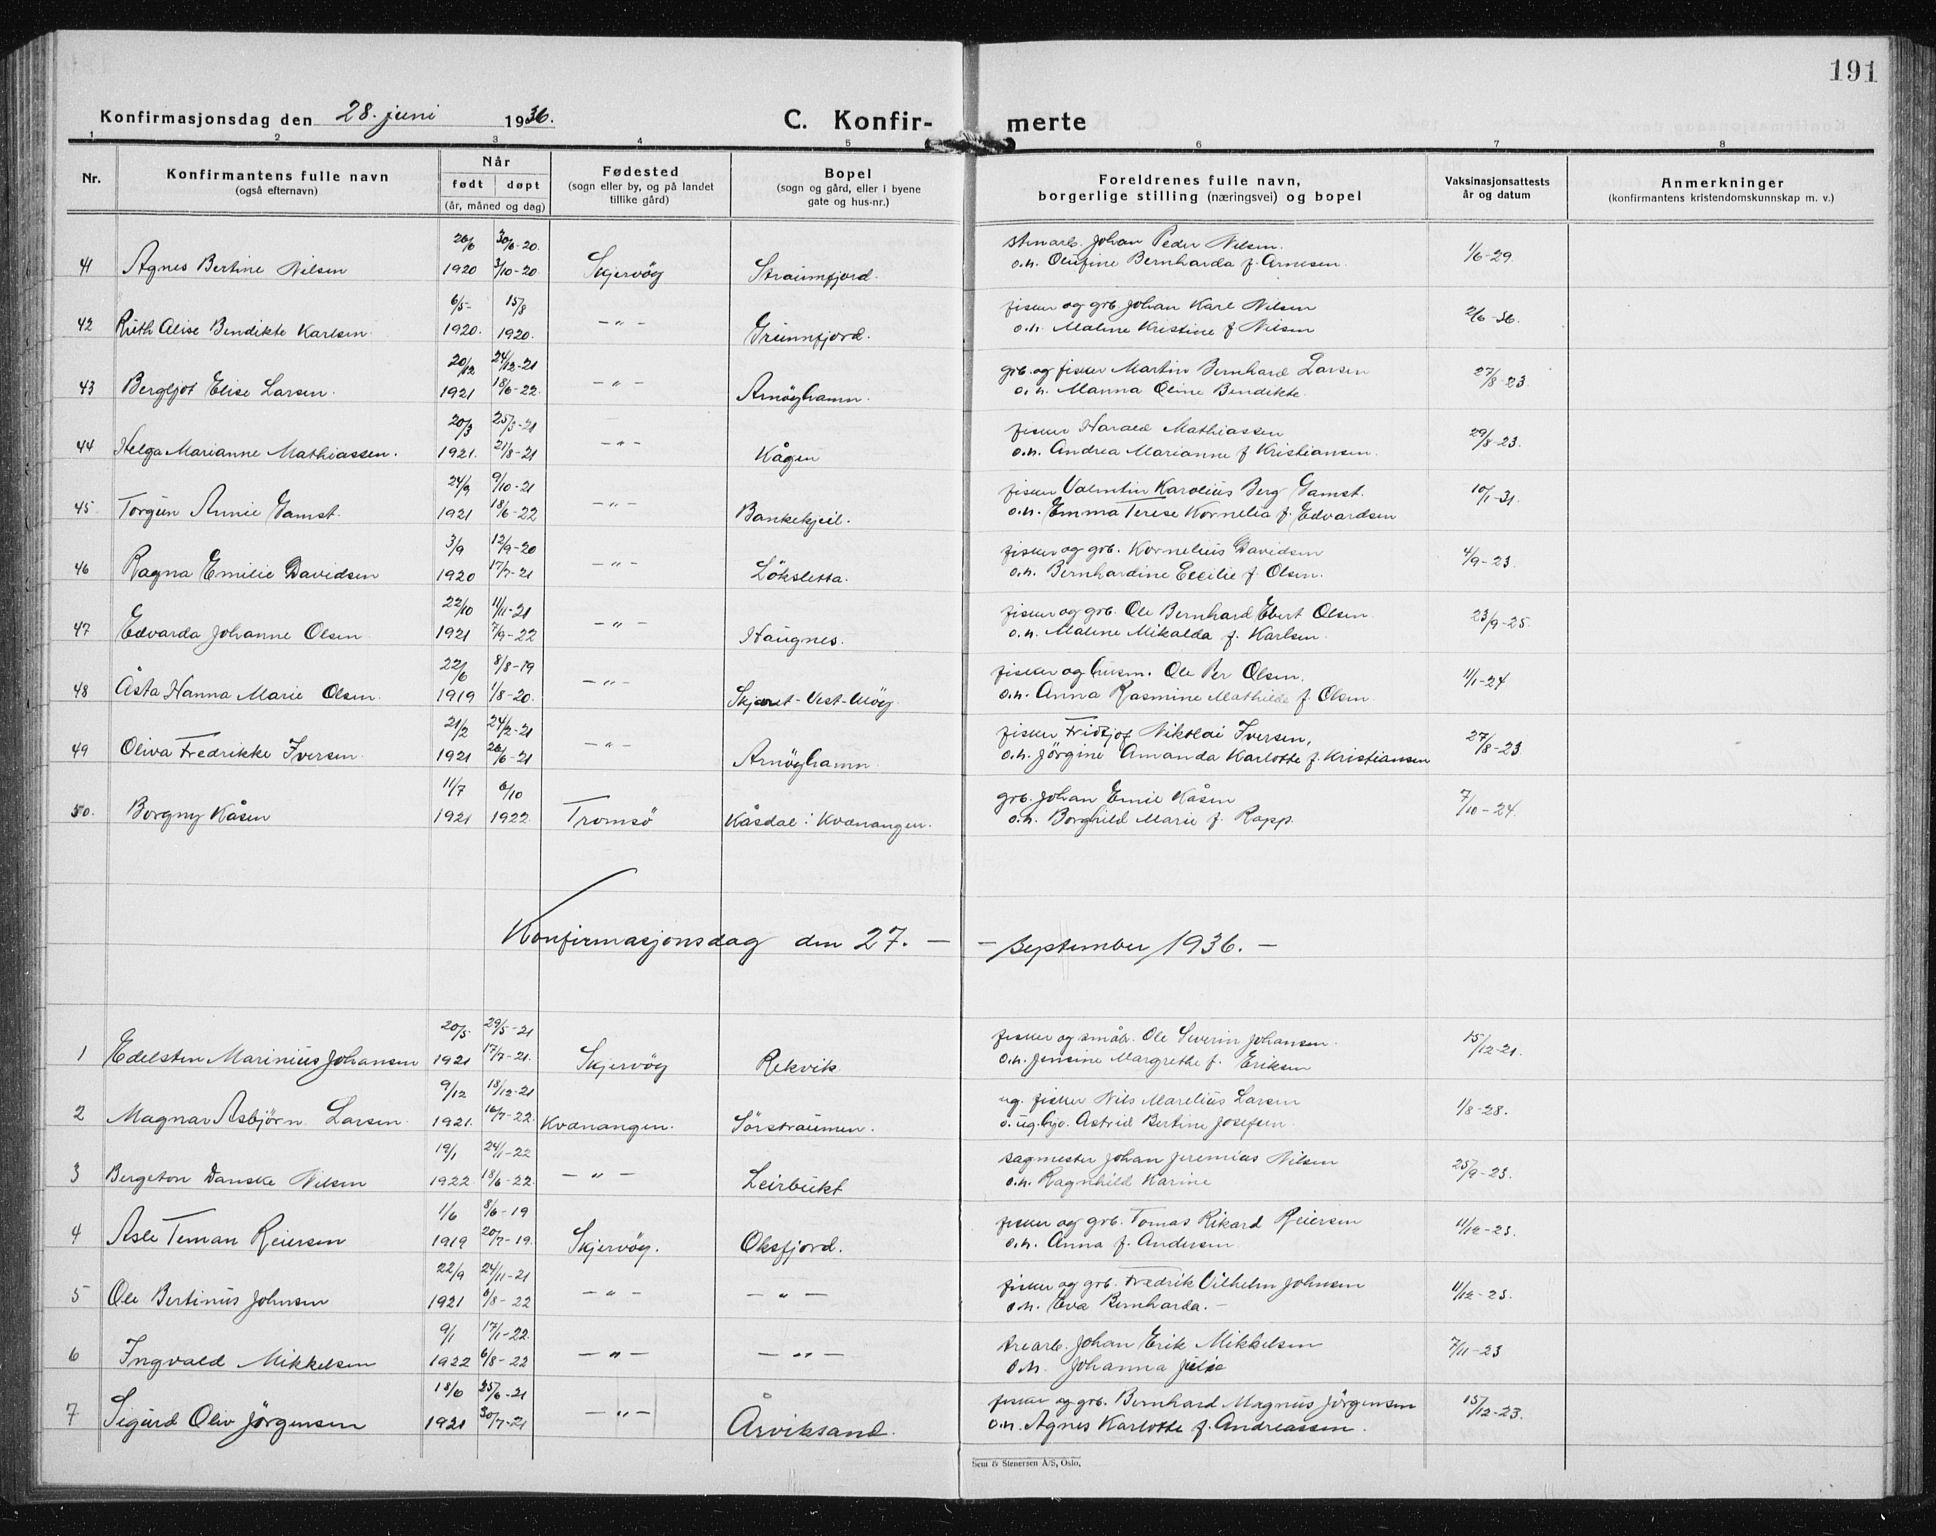 191
Konfirmasjonsdag den 28. juni 1936.
C. Konfir- merte
1 2 3 4 5 6 7 8
Nr. Konfirmantens fulle navn (også efternavn) Når født døpt (år, måned og dag) Fødested (sogn eller by, og på landet tillike gård) Bopel (sogn og gård, eller i byene gate og hus-nr.) Foreldrenes fulle navn, borgerlige stilling (næringsvei) og bopel Vaksinasjonsattests år og datum Anmerkninger (konfirmantens kristendomskunnskap m. v.)
26/6 30/6-20. stenarb. Johan Peder Nilsen.
41 Agnes Bertine Nilsen 1920 3/10-20 Skjervöy Straumfjord. o.h. Olufine Bernharda f. Arnesen. 1/6-29.
6/5- 15/8 fisker og grb. Johan Karl Nilsen
42 Ruth Alise Bendikte Karlsen. 1920. 1920. -"- Grunnfjord. o.h. Maline Kristine f Nilsen 2/6-36.
20/12 24/12-21 grb. og fisker Martin Bernhard Larsen
43 Bergljot Elise Larsen. 1921 18/6-22. -"- Arnöyhamn. o.h. Manna Oline Bendikte. 27/8-23.
20/3 25/3-21 fisker Harald Mathiassen
44 Helga Marianne Mathiassen. 1921. 21/8-21 -"- Kågen o.h. Andrea Marianne f Kristiansen. 29/8-23.
24/9 9/10-21 fisker Valentin Karolius Berg Gamst.
45. Torgun Annie Gamst. 1921 18/6-22 -"- Bankekjeil. o.h. Emma Terese Kornelia f. Edvardsen 10/1-31.
3/9 12/9-20 fisker og grb. Kornelius Davidsen
46 Ragna Emilie Davidsen 1920 17/7-21 -"- Löksletta. o.h. Bernhardine Cecilie f. Olsen. 4/9-23.
22/10 11/11-21 fisker og grb. Ole Bernhard Ebert Olsen
47 Edvarda Johanne Olsen. 1921 7/9-22 -"- Haugnes. o.h. Maline Mikalda f. Karlsen. 23/9-25.
22/6 8/8-19 fisker og husm. Ole Per Olsen.
48 Åsta Hanna Marie Olsen. 1919 1/8-20. -"- Skjæret-Vest-Ulöy. o.h. Anna Rasmine Mathilde f. Olsen 11/1-24
21/2 24/2-21 fisker Fridtjof Nikolai Iversen,
49 Oliva Fredrikke Iversen. 1921 26/6-21 -"- Arnöyhamn. o.h. Jörgine Amanda Karlotte f. Kristiansen 27/8-23.
11/7 6/10 grb. Johan Emil Kåsen
50. Borgny Kåsen 1921 1922. Tromsö Kåsdal i Kvænangen. o.h. Borghild Marie f. Rapp. 7/10-24.
Konfirmasjonsdag den 27. - - september 1936. -
20/5. 29/5-21 fisker og småb. Ole Severin Johansen.
1 Edelsten Marinius Johansen 1921 17/7-21. Skjervöy Rekvik. o.h. Jensine Margrethe f. Eriksen 15/12-21.
9/12 18/12-21 ug. fisker Nils Marelius Larsen
2 Magnar Asbjörn Larsen. 1921. 16/7-22. Kvænangen. Sörstraumen. o. ug. Astrid Bertine Josefsen. 1/8-28.
19/1 24/1-22 sagmester Johan Jeremias Nilsen
3 Bergeton Danske Nilsen 1922 18/6-22. -"- Leirbukt o.h. Ragnhild Karine 25/9-23.
1/6 8/6-19 fisker og grb. Tomas Rikard Reiersen
4 Asle Teman Reiersen 1919 20/7-19. Skjervöy. Oksfjord. o.h. Anna f. Andersen. 11/12-23.
22/9 24/11-21 fisker og grb. Fredrik Vilhelm Johnsen
5 Ole Bertinus Johnsen 1921 6/8-22 -"- -"- o.h. Eva Bernharda. - 11/12-23.
9/1 17/1-22. trearb. Johan Erik Mikkelsen
6 Ingvald Mikkelsen 1922 6/8-22 -"- -"- o.h. Johanna Julie 7/11-23
18/6 25/6-21 fisker og grb. Bernhard Magnus Jörgensen
7 Sigurd Oliv Jörgensen 1921 30/7-21 -"- Årviksand. o.h. Agnes Karlotte f. Andreassen. 15/12-23.
Sem & Stenersen A/S, Oslo.